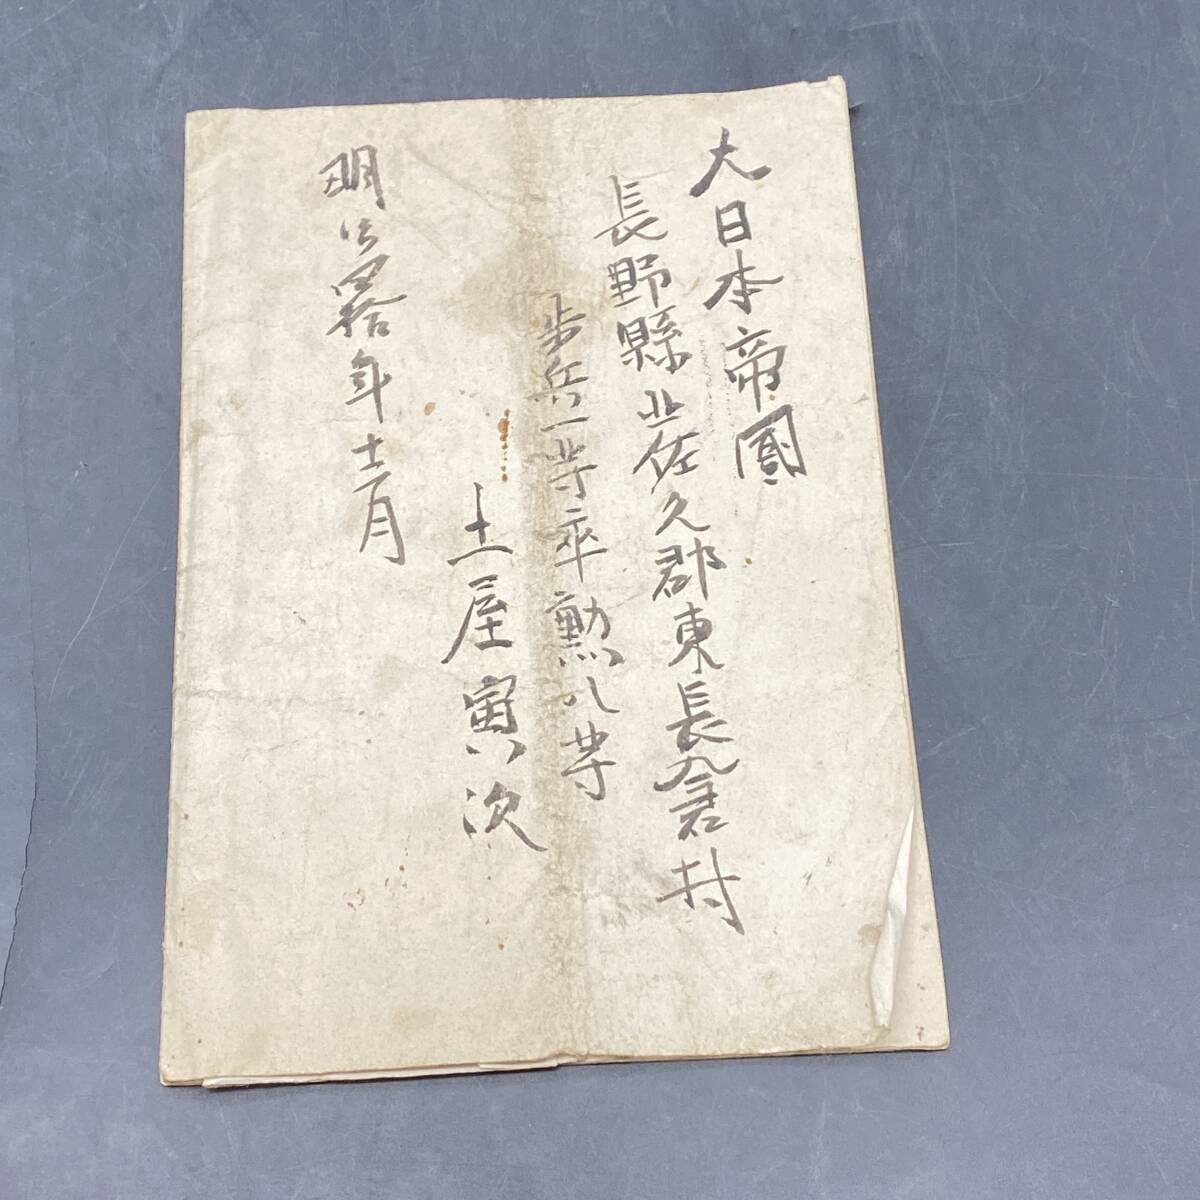 大日本帝國
長野縣北佐久郡東長倉村
歩兵一等卒勲八等
土屋寅次
明治四拾年十二月